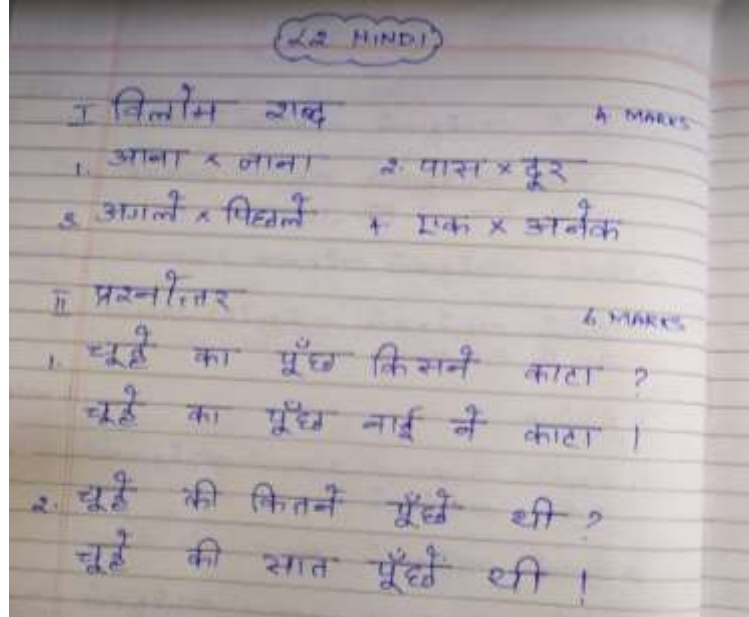 L2 HINDI
I विलोम शब्द 4 MARKS
1. आना × जाना 2. पास × दूर
3. अगले × पिछले 4. एक × अनेक
II प्रश्नोत्तर 6 MARKS
1. चूहे का पूँछ किसने काटा ?
चूहे का पूँछ नाई ने काटा ।
2. चूहे की कितने पूँछे थी ?
चूहे की सात पूँछें थी ।